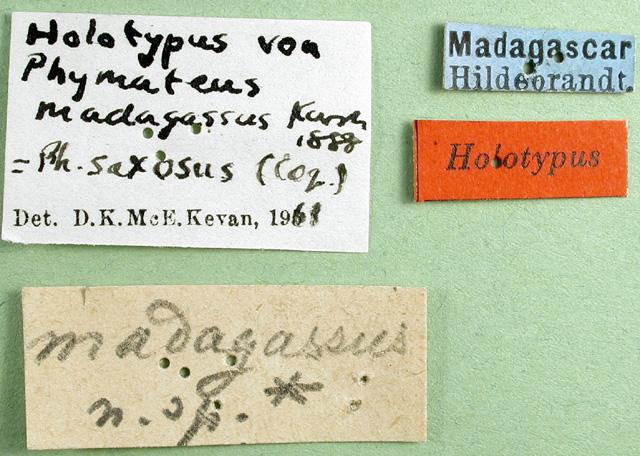 Holotypus von
Phymateus
madagassus Karsch
1888
= Ph. saxosus (Coq.)
Det. D.K.McE.Kevan, 1961
Madagascar
Hildebrandt.
Holotypus
madagassus
n. sp. *